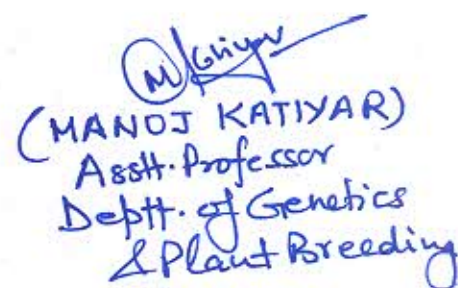 (MANOJ KATIYAR)
Asstt. Professor
Deptt. of Genetics
& Plant Breeding